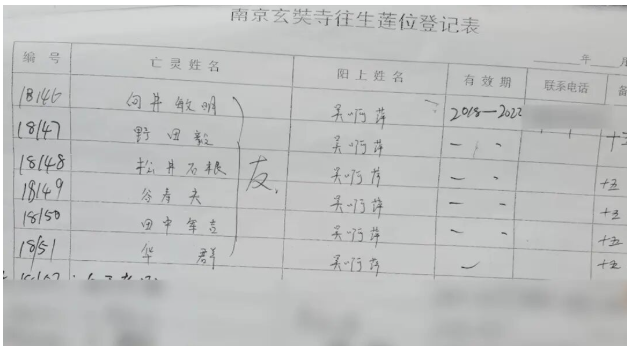 南京玄奘寺往生莲位登记表
年 月
编号 亡灵姓名 阳上姓名 有效期 联系电话 备
18146 向井敏明 吴啊萍 2018—2022
18147 野田毅 吴啊萍 — 、 十五
18148 松井石根 友. 吴啊萍 — 、 十五
18149 谷寿夫 吴啊萍 — 、 十五
18150 田中军吉 吴啊萍 — 、 十五
18151 华群 吴啊萍 — 十五